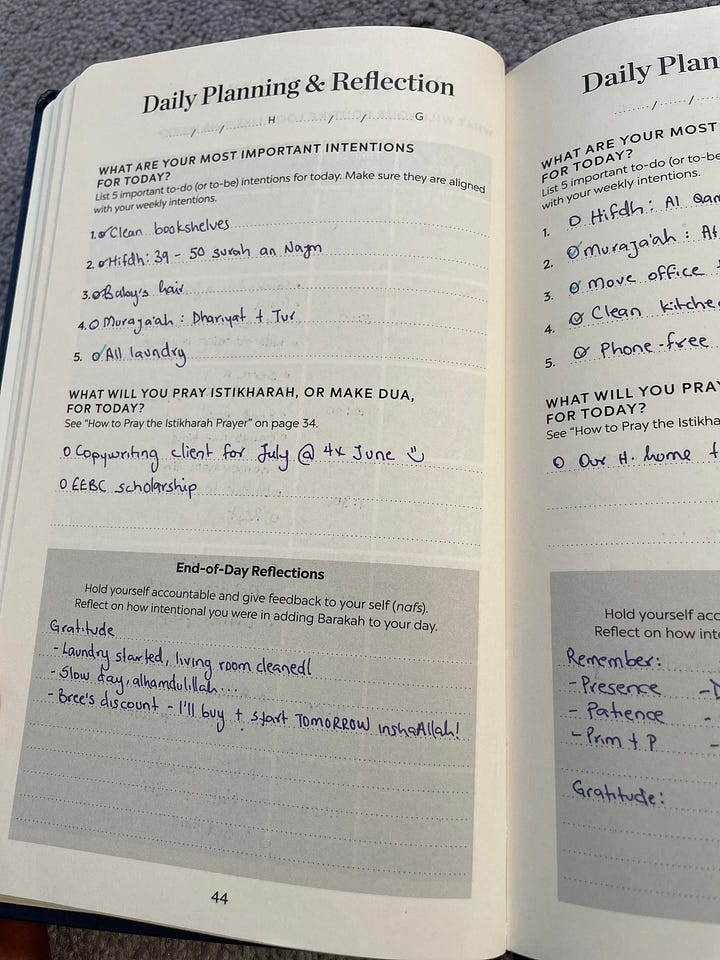 Daily Planning & Reflection
....../....../...... H ....../....../...... G
WHAT ARE YOUR MOST IMPORTANT INTENTIONS
FOR TODAY?
List 5 important to-do (or to-be) intentions for today. Make sure they are aligned
with your weekly intentions.
1. Clean bookshelves
2. Hifdh: 39 - 50 surah an Najm
3. Baby's hair
4. Muraja'ah : Dhariyat + Tur
5. All laundry
WHAT WILL YOU PRAY ISTIKHARAH, OR MAKE DUA,
FOR TODAY?
See "How to Pray the Istikharah Prayer" on page 34.
Copywriting client for July @ 4x June
EEBC scholarship
End-of-Day Reflections
Hold yourself accountable and give feedback to your self (nafs).
Reflect on how intentional you were in adding Barakah to your day.
Gratitude
- Laundry started, living room cleaned!
- Slow day, alhamdulillah...
- Bree's discount - I'll buy + start TOMORROW inshaAllah!
44
Daily Plan
....../....../
WHAT ARE YOUR MOST
FOR TODAY?
List 5 important to-do (or to-be
with your weekly intentions.
1. Hifdh: Al Qam
2. Muraja'ah : At
3. Move office
4. Clean kitche
5. Phone-free
WHAT WILL YOU PRAY
FOR TODAY?
See "How to Pray the Istikha
Our H. home +
Hold yourself acc
Reflect on how inte
Remember:
- Presence
- Patience
- Prim + P
Gratitude: